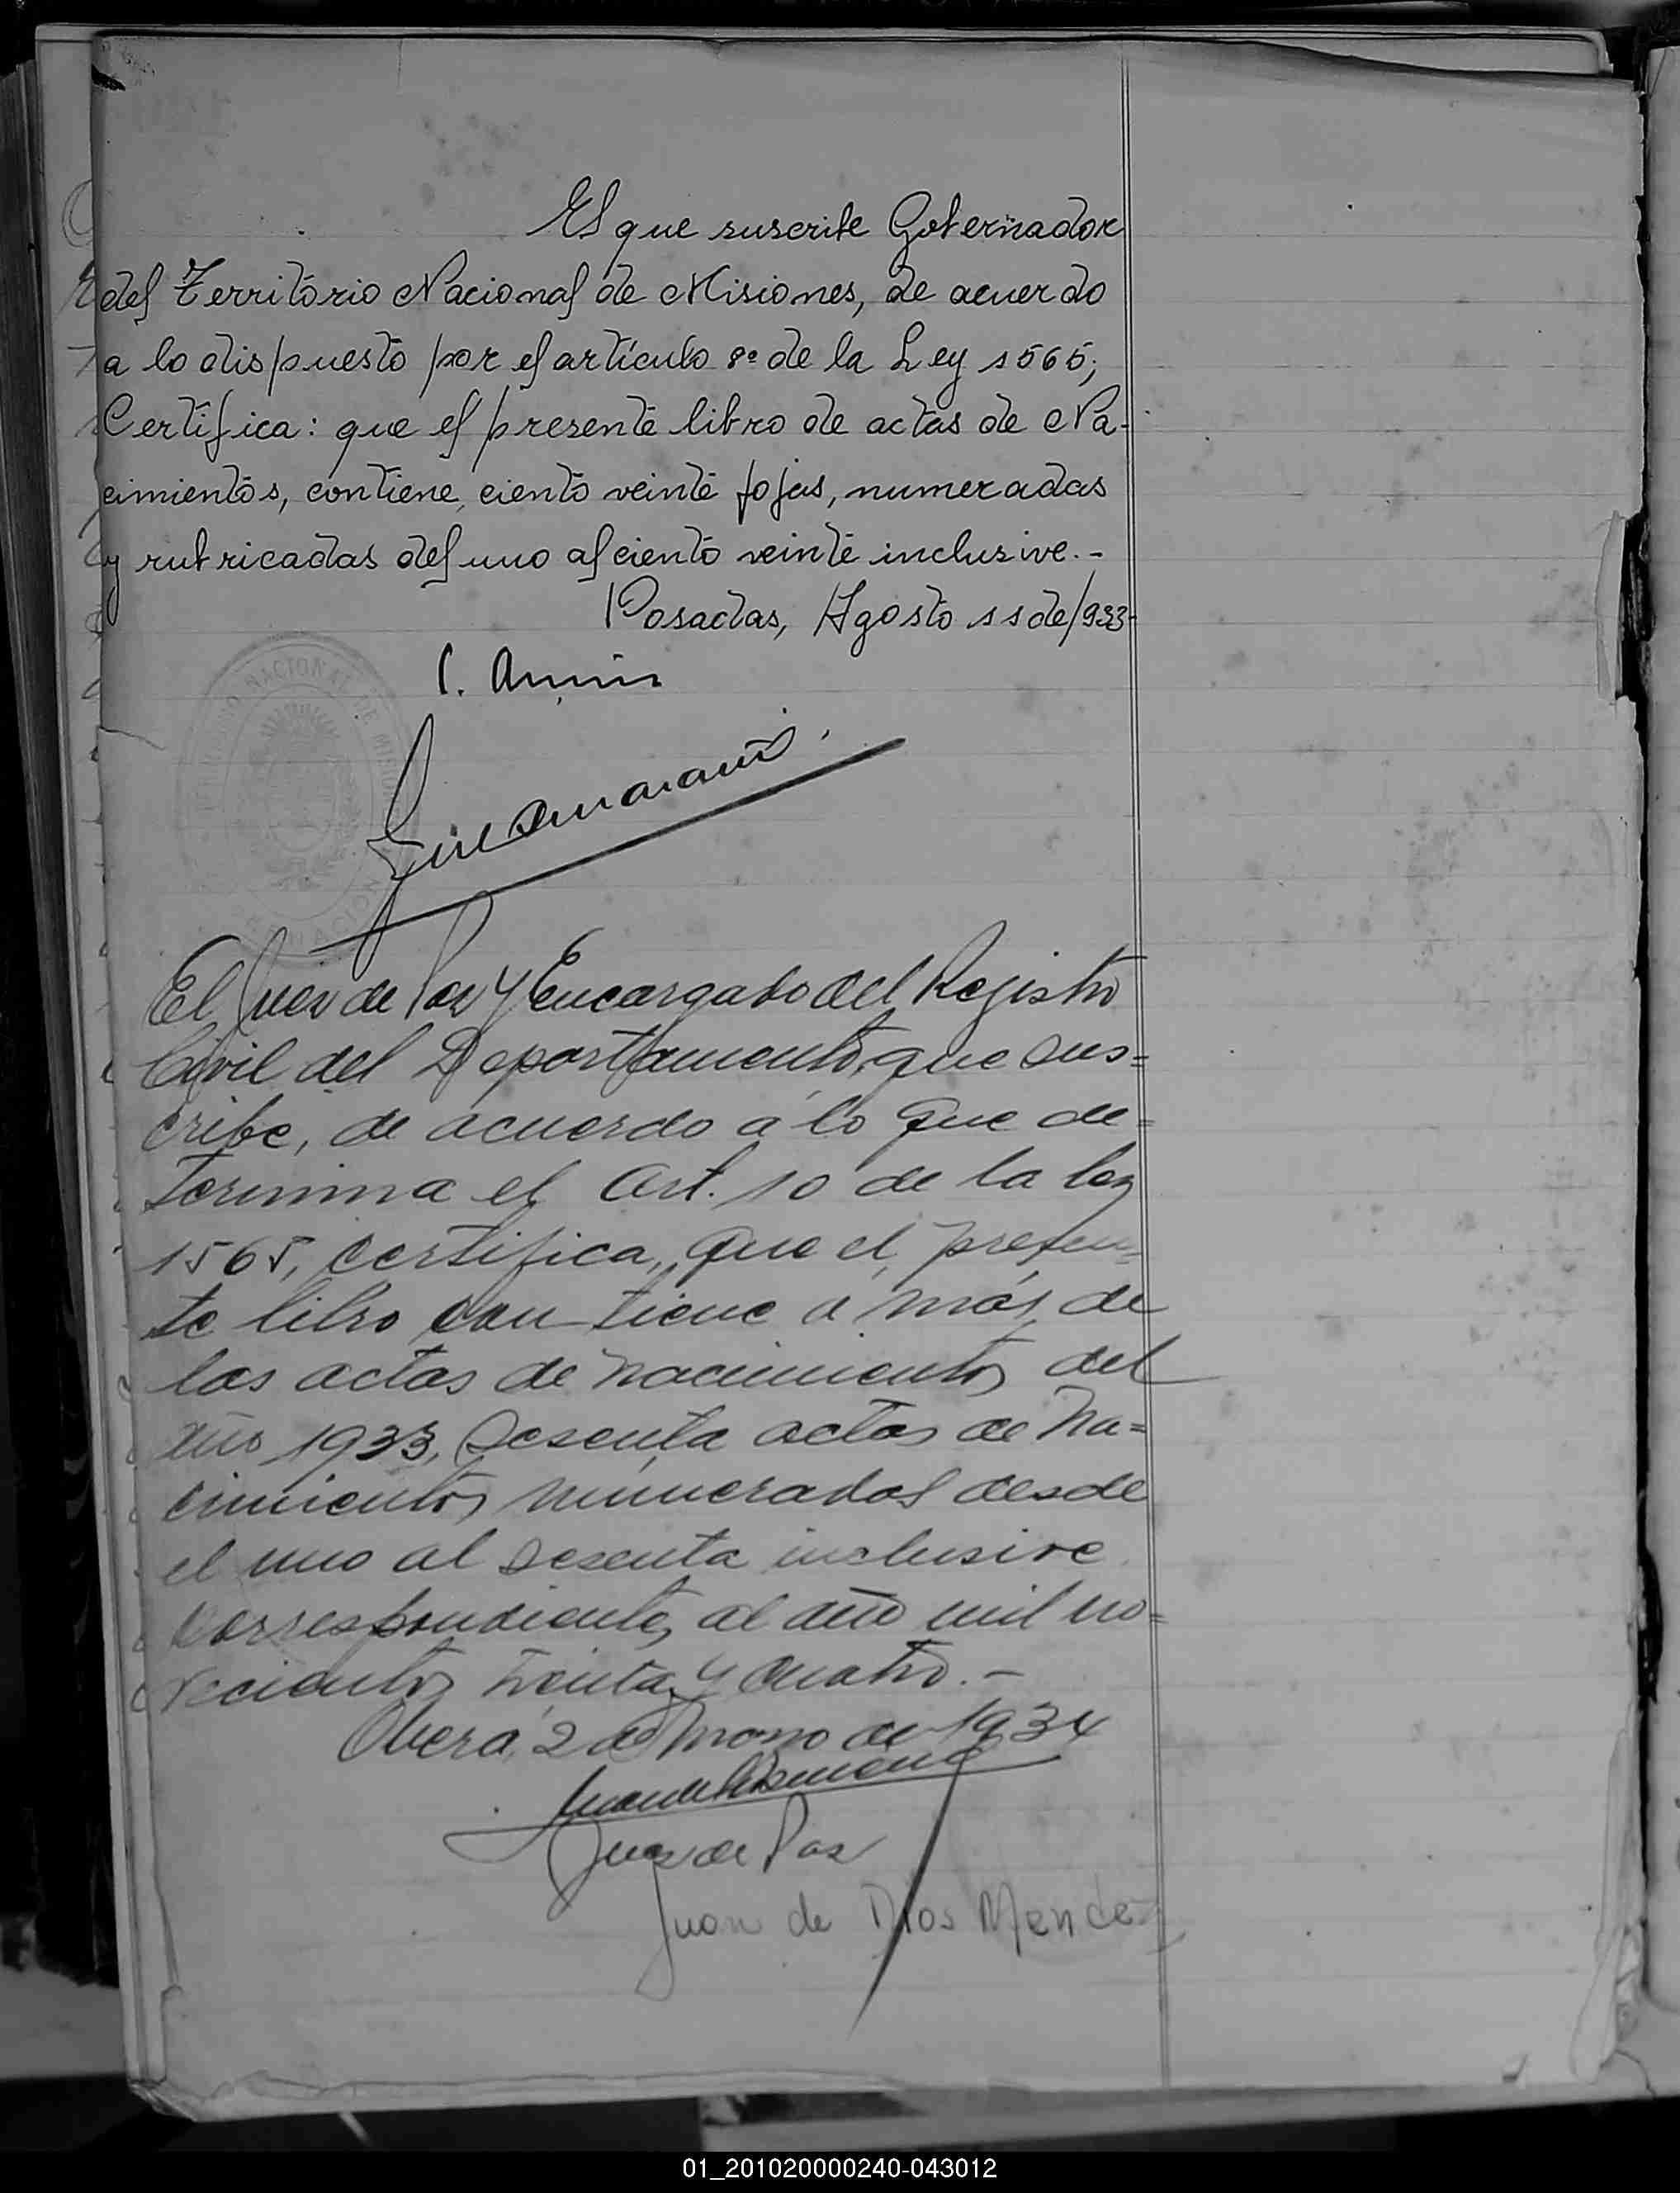 El que suscribe Gobernador
del Território Nacional de Misiones, de acuerdo
a lo dispuesto por el artículo 8º de la Ley 1565;
Certifica: que el presente libro de actas de Na-
cimientos, contiene, ciento veinte fojas, numeradas
y rubricadas del uno al ciento veinte inclusive.-
Posadas, Agosto 11 de/933-
NACIONAL DE MISIONES
El Juez de Paz y Encargado del Registro
Civil del Departamento, que sus=
cribe, de acuerdo a lo que de=
termina el Art. 10 de la ley
1565, certifica, que el presen=
te libro contiene a más de
las actas de nacimientos del
año 1933, sesenta actas de na=
cimientos numerados desde
el uno al sesenta inclusive
correspondientes al año mil no=
vecientos treinta y cuatro.-
Oberá, 2 de de 1934
Juez de Paz
Juan de Dios Mendez
01_201020000240-043012